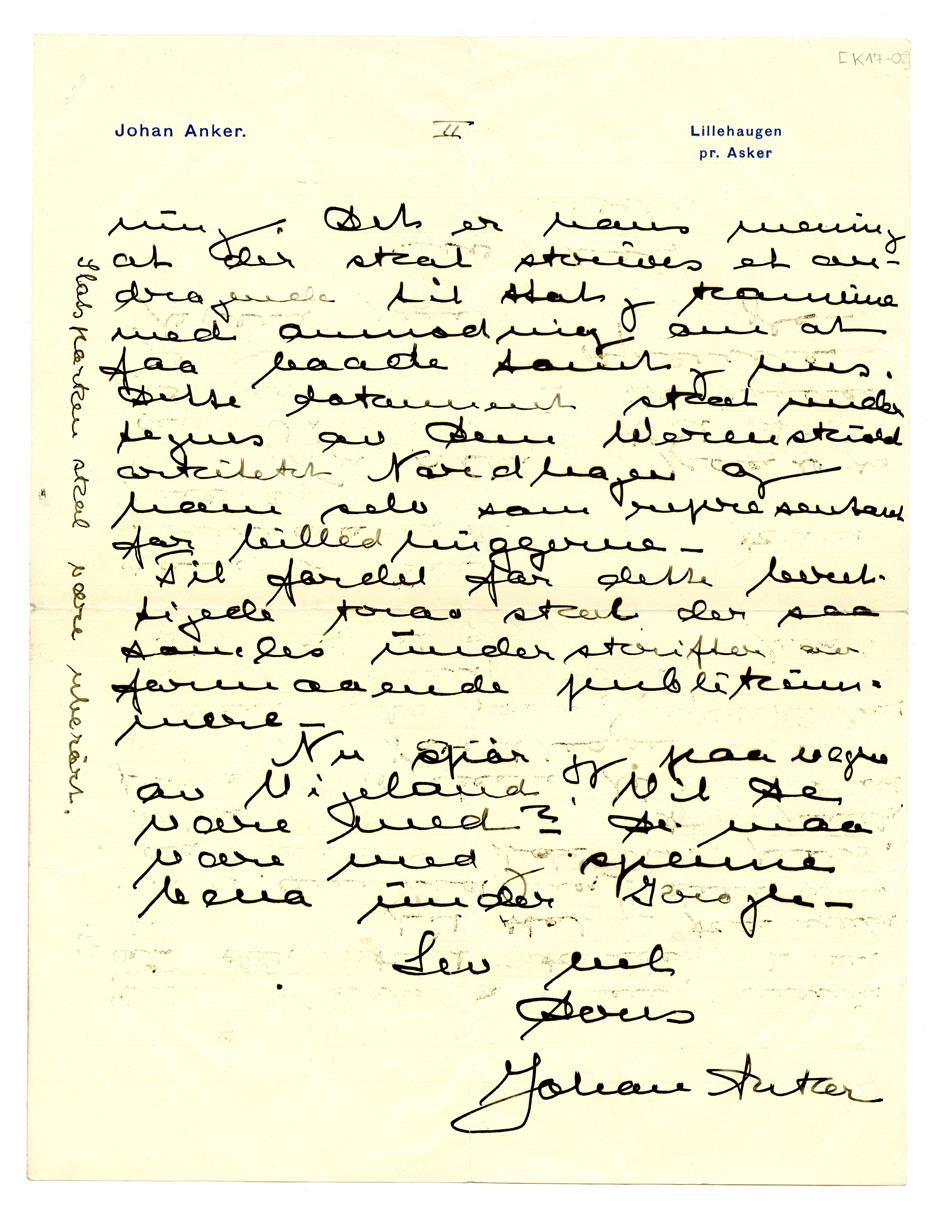 [K17-02]
Johan Anker.
II
Lillehaugen
pr. Asker
ning. Det er hans mening
at der skal skrives et an-
dragende til Stat og Kommune
med anmodning om at
faa baade Samt og
Dette dokument skal under
tegnes av Dem Werenskiold
arkitekt Nordhagen og
ham selv som representant
for billedhuggerne –
Til fordel for dette beret-
tigede krav skal der saa
samles underskrifter av
formaaende publikum-
mere –
Nu spør jeg paa vegne
av Vigeland. Vil De
være med? De maa
være med spenne
bena under
Lev vel
Deres
Johan Anker
Slotsparken skal være uberört.